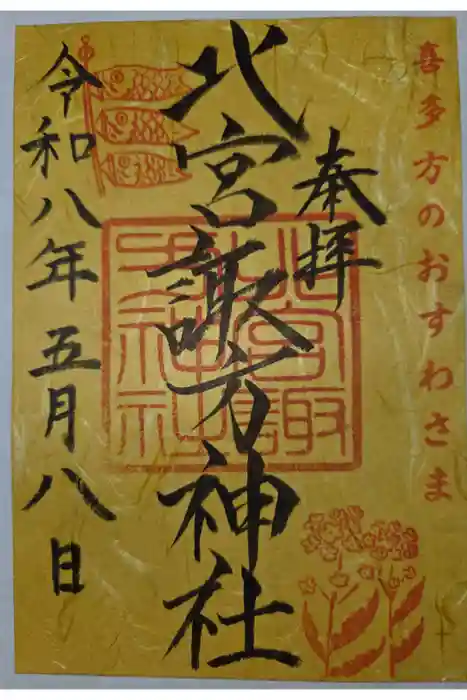 喜多方のおすわさま
奉拝
北宮諏方神社
北宮諏方神社
令和八年五月八日